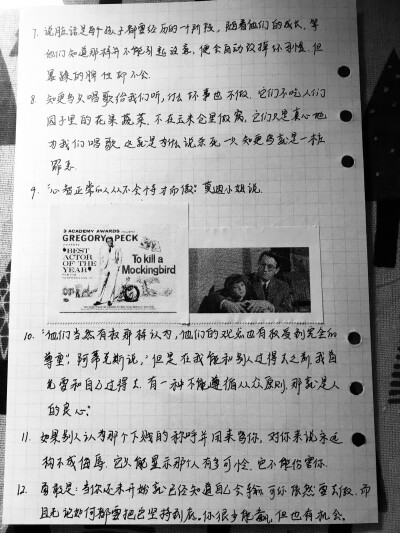 7. 说脏话是每个孩子都要经历的一个阶段，随着他们的成长，等
他们知道那样并不能引起注意，便会自动改掉坏习惯。但
暴躁的脾性却不会。
8. 知更鸟只唱歌给我们听，什么坏事也不做。它们不吃人们
园子里的花果蔬菜，不在玉米仓里做窝，它们只是衷心地
为我们唱歌。这就是为什么说杀死一只知更鸟就是一桩
罪恶。
9. "心智正常的人从不会恃才而傲。"莫迪小姐说。
3 ACADEMY AWARDS
GREGORY PECK
"BEST
ACTOR
OF THE
YEAR"
To kill a
Mockingbird
10. "他们当然有权那样认为，他们的观点也有权受到完全的
尊重"，阿蒂克斯说，"但是在我能和别人过得去之前，我首
先要和自己过得去。有一种不能遵循从众原则，那就是人
的良心。"
11. 如果别人认为那个下贱的称呼并用来骂你，对你来说永远
构不成侮辱。它只能显示那个人有多可怜，它不能伤害你。
12. 勇敢是：当你还未开始就已经知道自己会输，可你依然要去做，而
且无论如何都要把它坚持到底。你很少能赢，但也有机会。